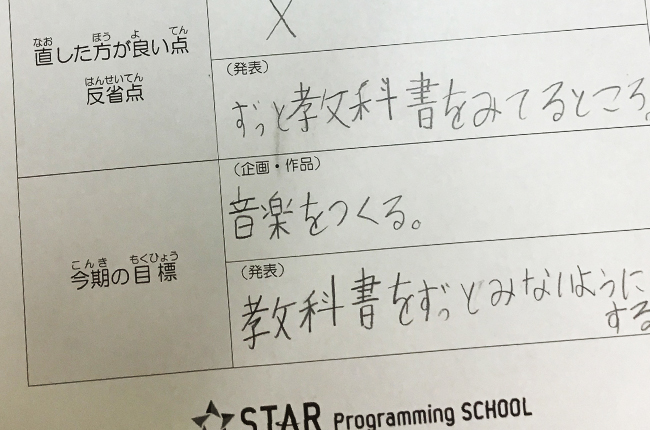 なお ほう よ てん
直した方が良い点
はんせいてん
反省点
×
（発表）
ずっと教文科書をみてるところ。
こんき もくひょう
今期の目標
（企画・作品）
音楽をつくる。
（発表）
教科書をずっとみないように
する
STAR Programming SCHOOL